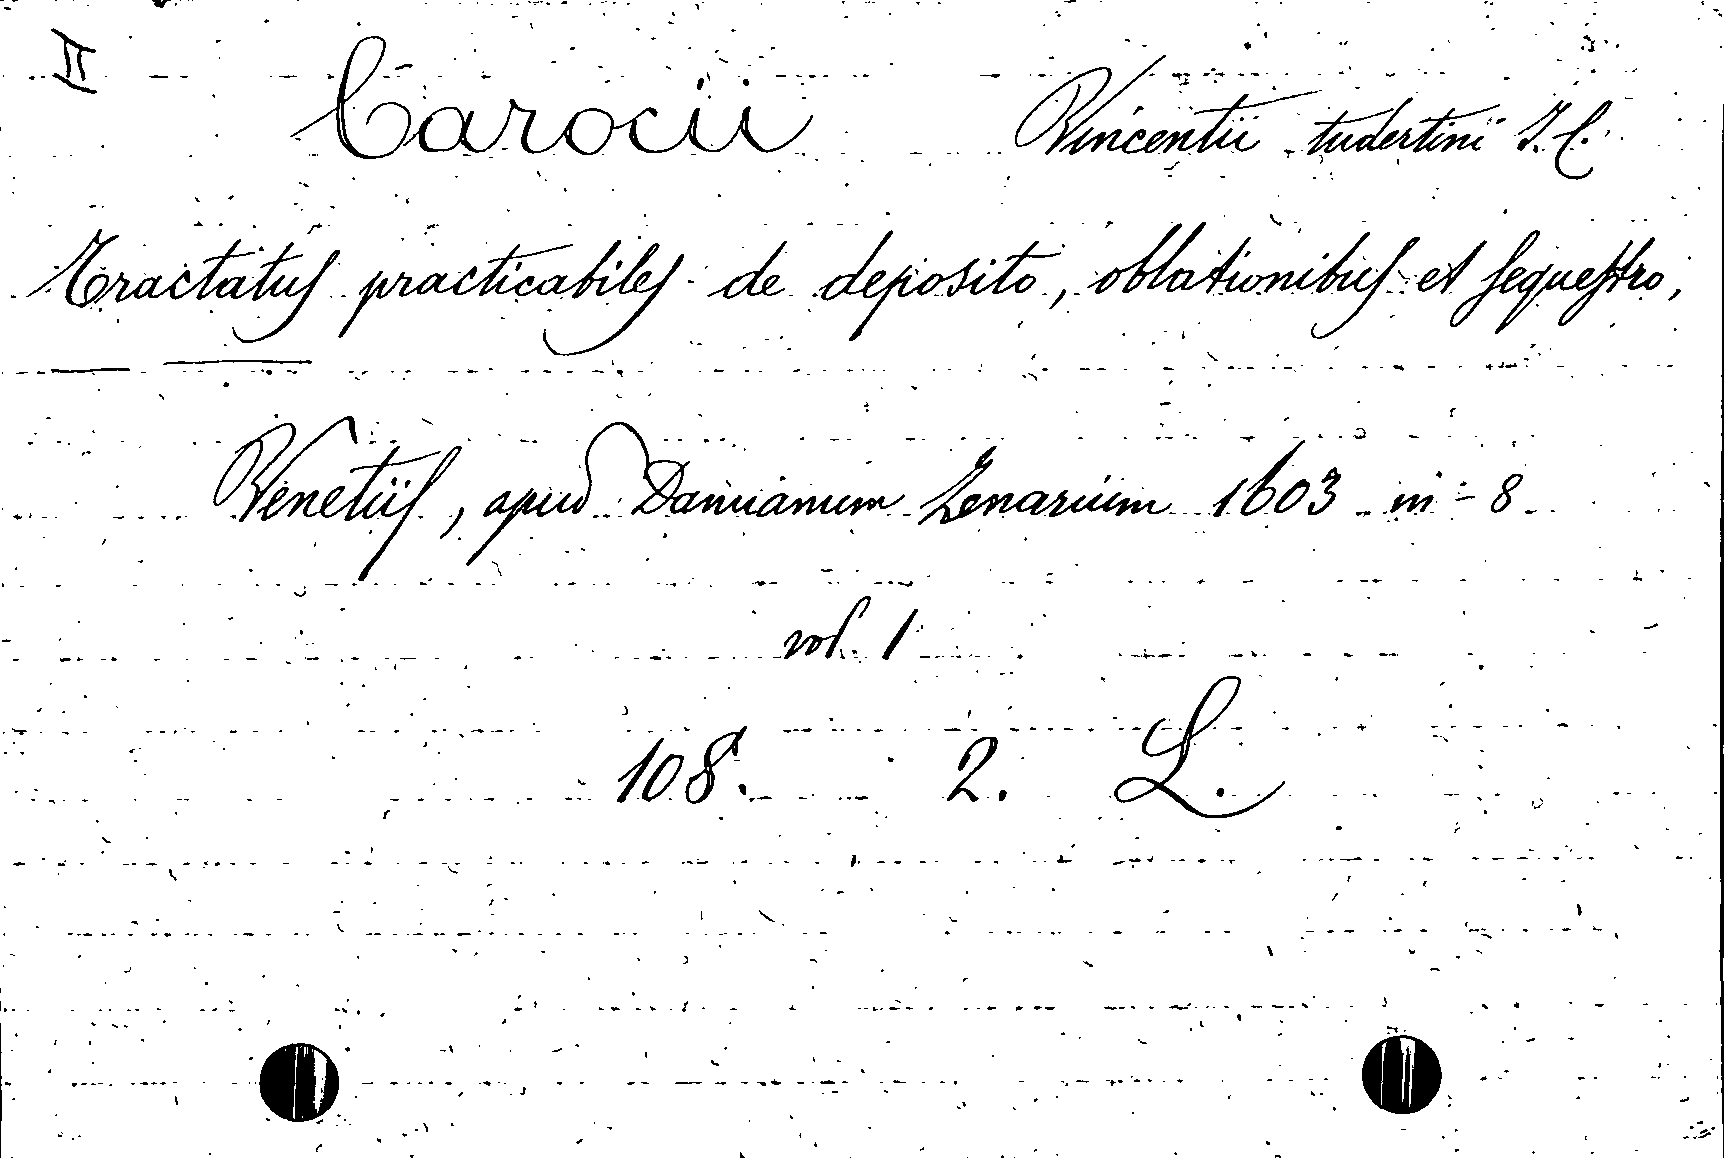 II Carocii Vincentii tudertini J. C.
Tractatus practicabiles de deposito, oblationibus et sequestro,
Venetiis, apud Damianum Zenarium 1603 in-8
vol. 1
108. 2. L.